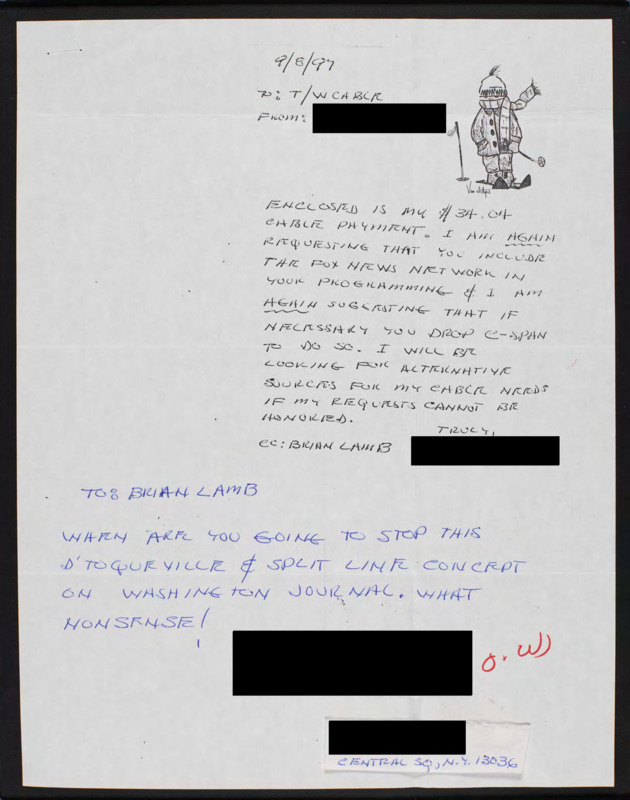 9/8/97
TO: T/W CABLE
FROM:
ENCLOSED IS MY $34.04
CABLE PAYMENT. I AM AGAIN
REQUESTING THAT YOU INCLUDE
THE FOX NEWS NETWORK IN
YOUR PROGRAMMING & I AM
AGAIN SUGGESTING THAT IF
NECESSARY YOU DROP C-SPAN
TO DO SO. I WILL BE
LOOKING FOR ALTERNATIVE
SOURCES FOR MY CABLE NEEDS
IF MY REQUESTS CANNOT BE
HONORED.
TRULY,
CC: BRIAN LAMB
TO: BRIAN LAMB
WHEN ARE YOU GOING TO STOP THIS
D'TOQUEVILLE & SPLIT LINE CONCEPT
ON WASHINGTON JOURNAL. WHAT
NONSENSE!
CENTRAL SQ, N.Y. 13036